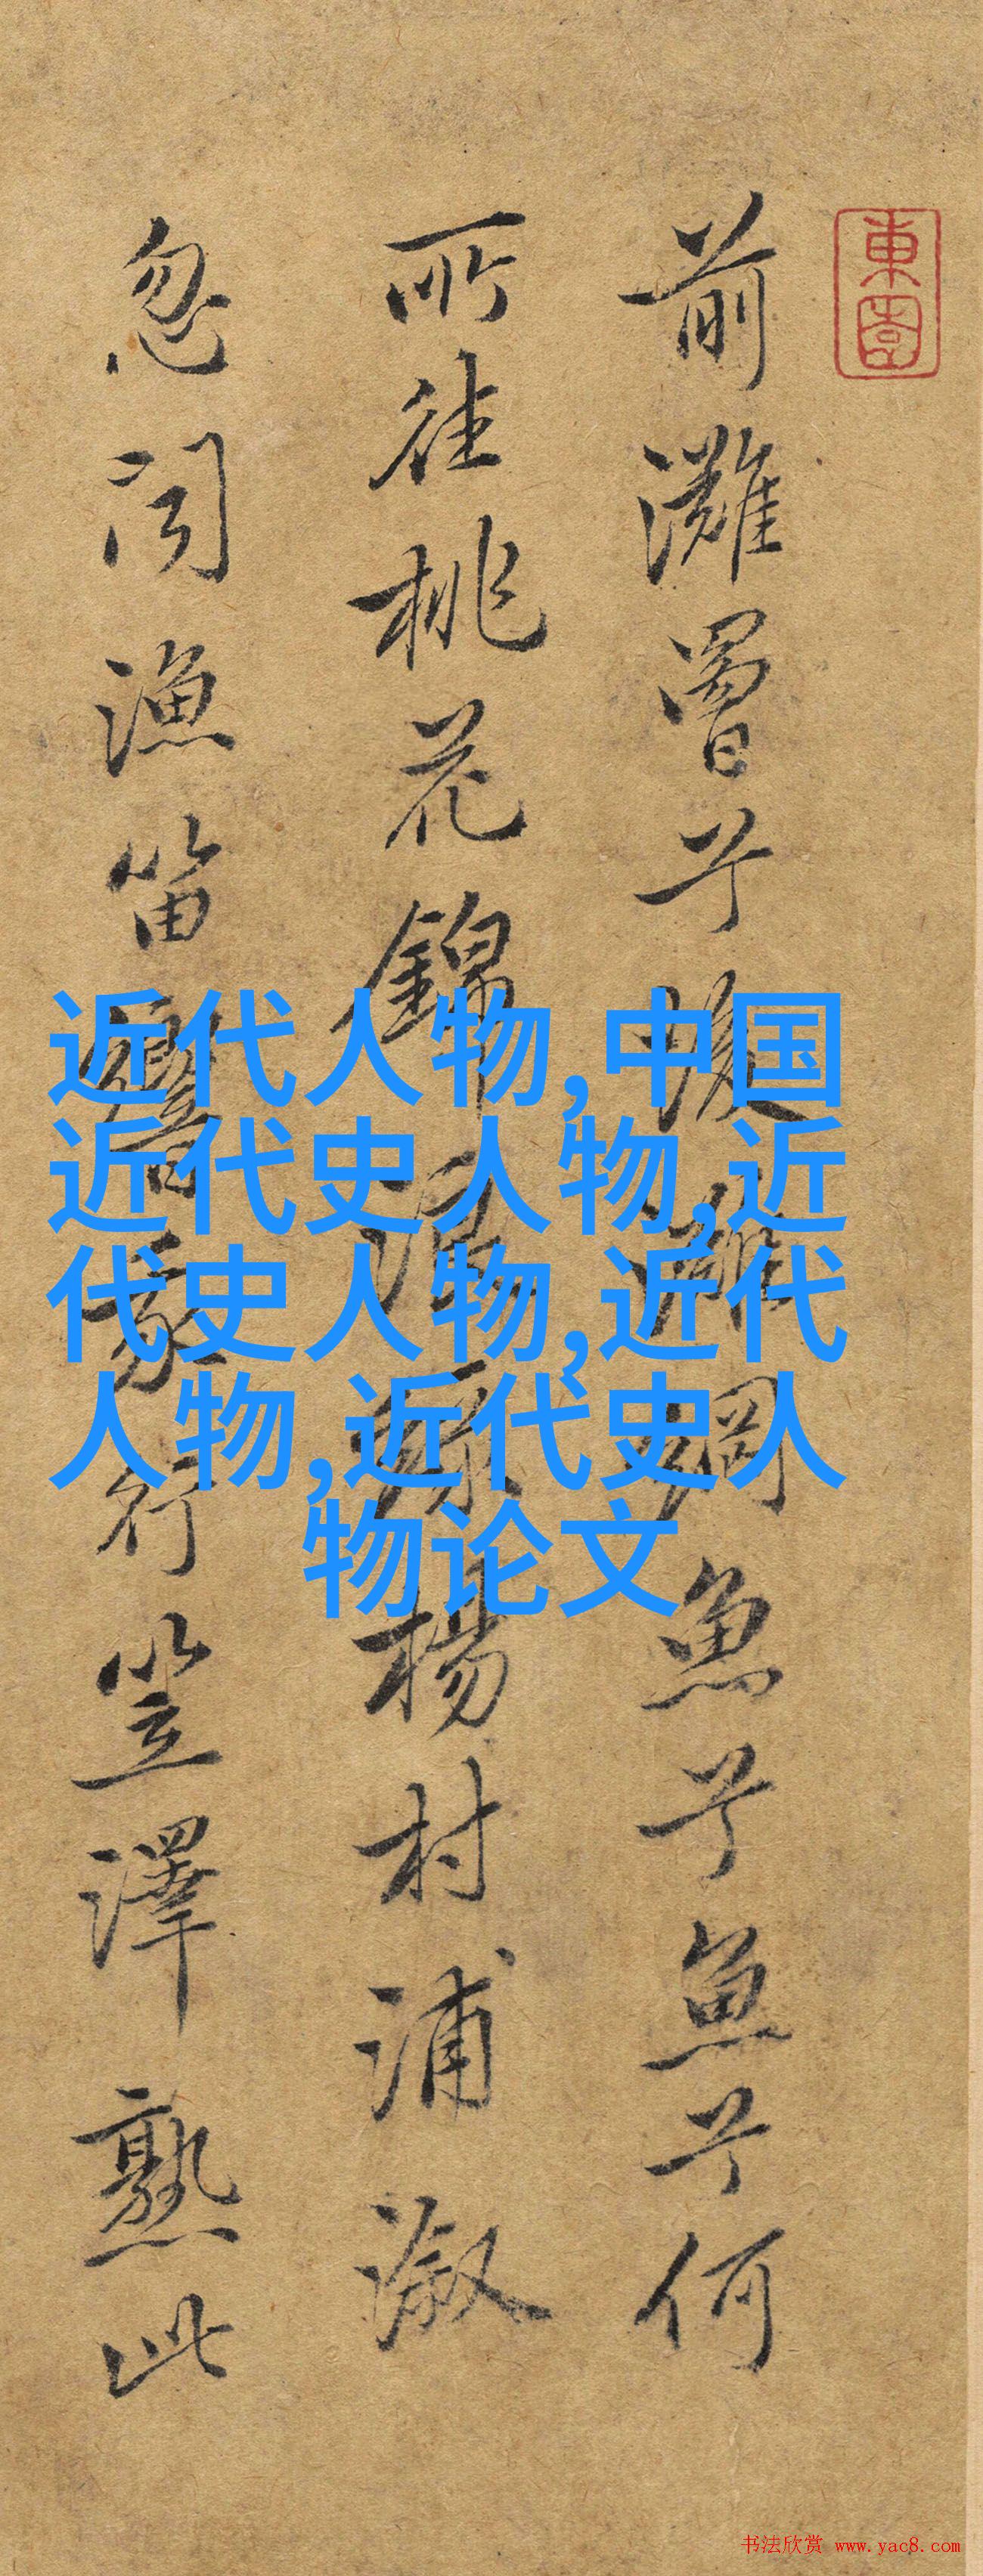 東園
前灘罾子後灘網魚子魚子何
所往桃花錦浪綠楊村浦溆
忽聞漁笛響家行笠澤熟此
近代人物,中国
近代史人物,近
代史人物,近代
人物,近代史人
物论文
书法欣赏 www.yac8.com